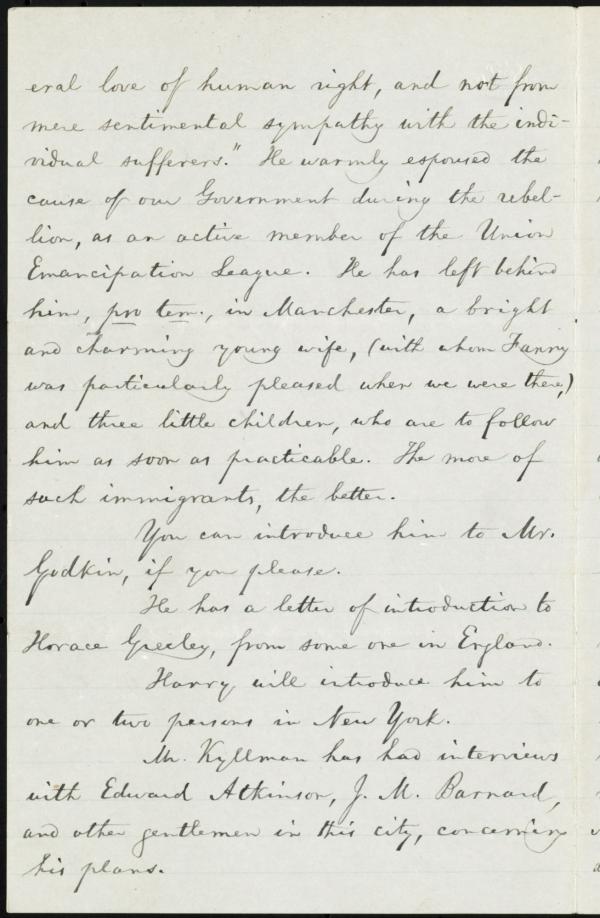 eral love of human right, and not from
mere sentimental sympathy with the indi-
vidual sufferers." He warmly espoused the
cause of our Government during the rebel-
lion, as an active member of the Union
Emancipation League. He has left behind
him, pro tem., in Manchester, a bright
and charming young wife, (with whom Fanny
was particularly pleased when we were there,)
and three little children, who are to follow
him as soon as practicable. The more of
such immigrants, the better.
You can introduce him to Mr.
Godkin, if you please.
He has a letter of introduction to
Horace Greeley, from some one in England.
Harry will introduce him to
one or two persons in New York.
Mr. Kyllman has had interviews
with Edward Atkinson, J. M. Barnard,
and other gentlemen in this city, concerning
his plans.